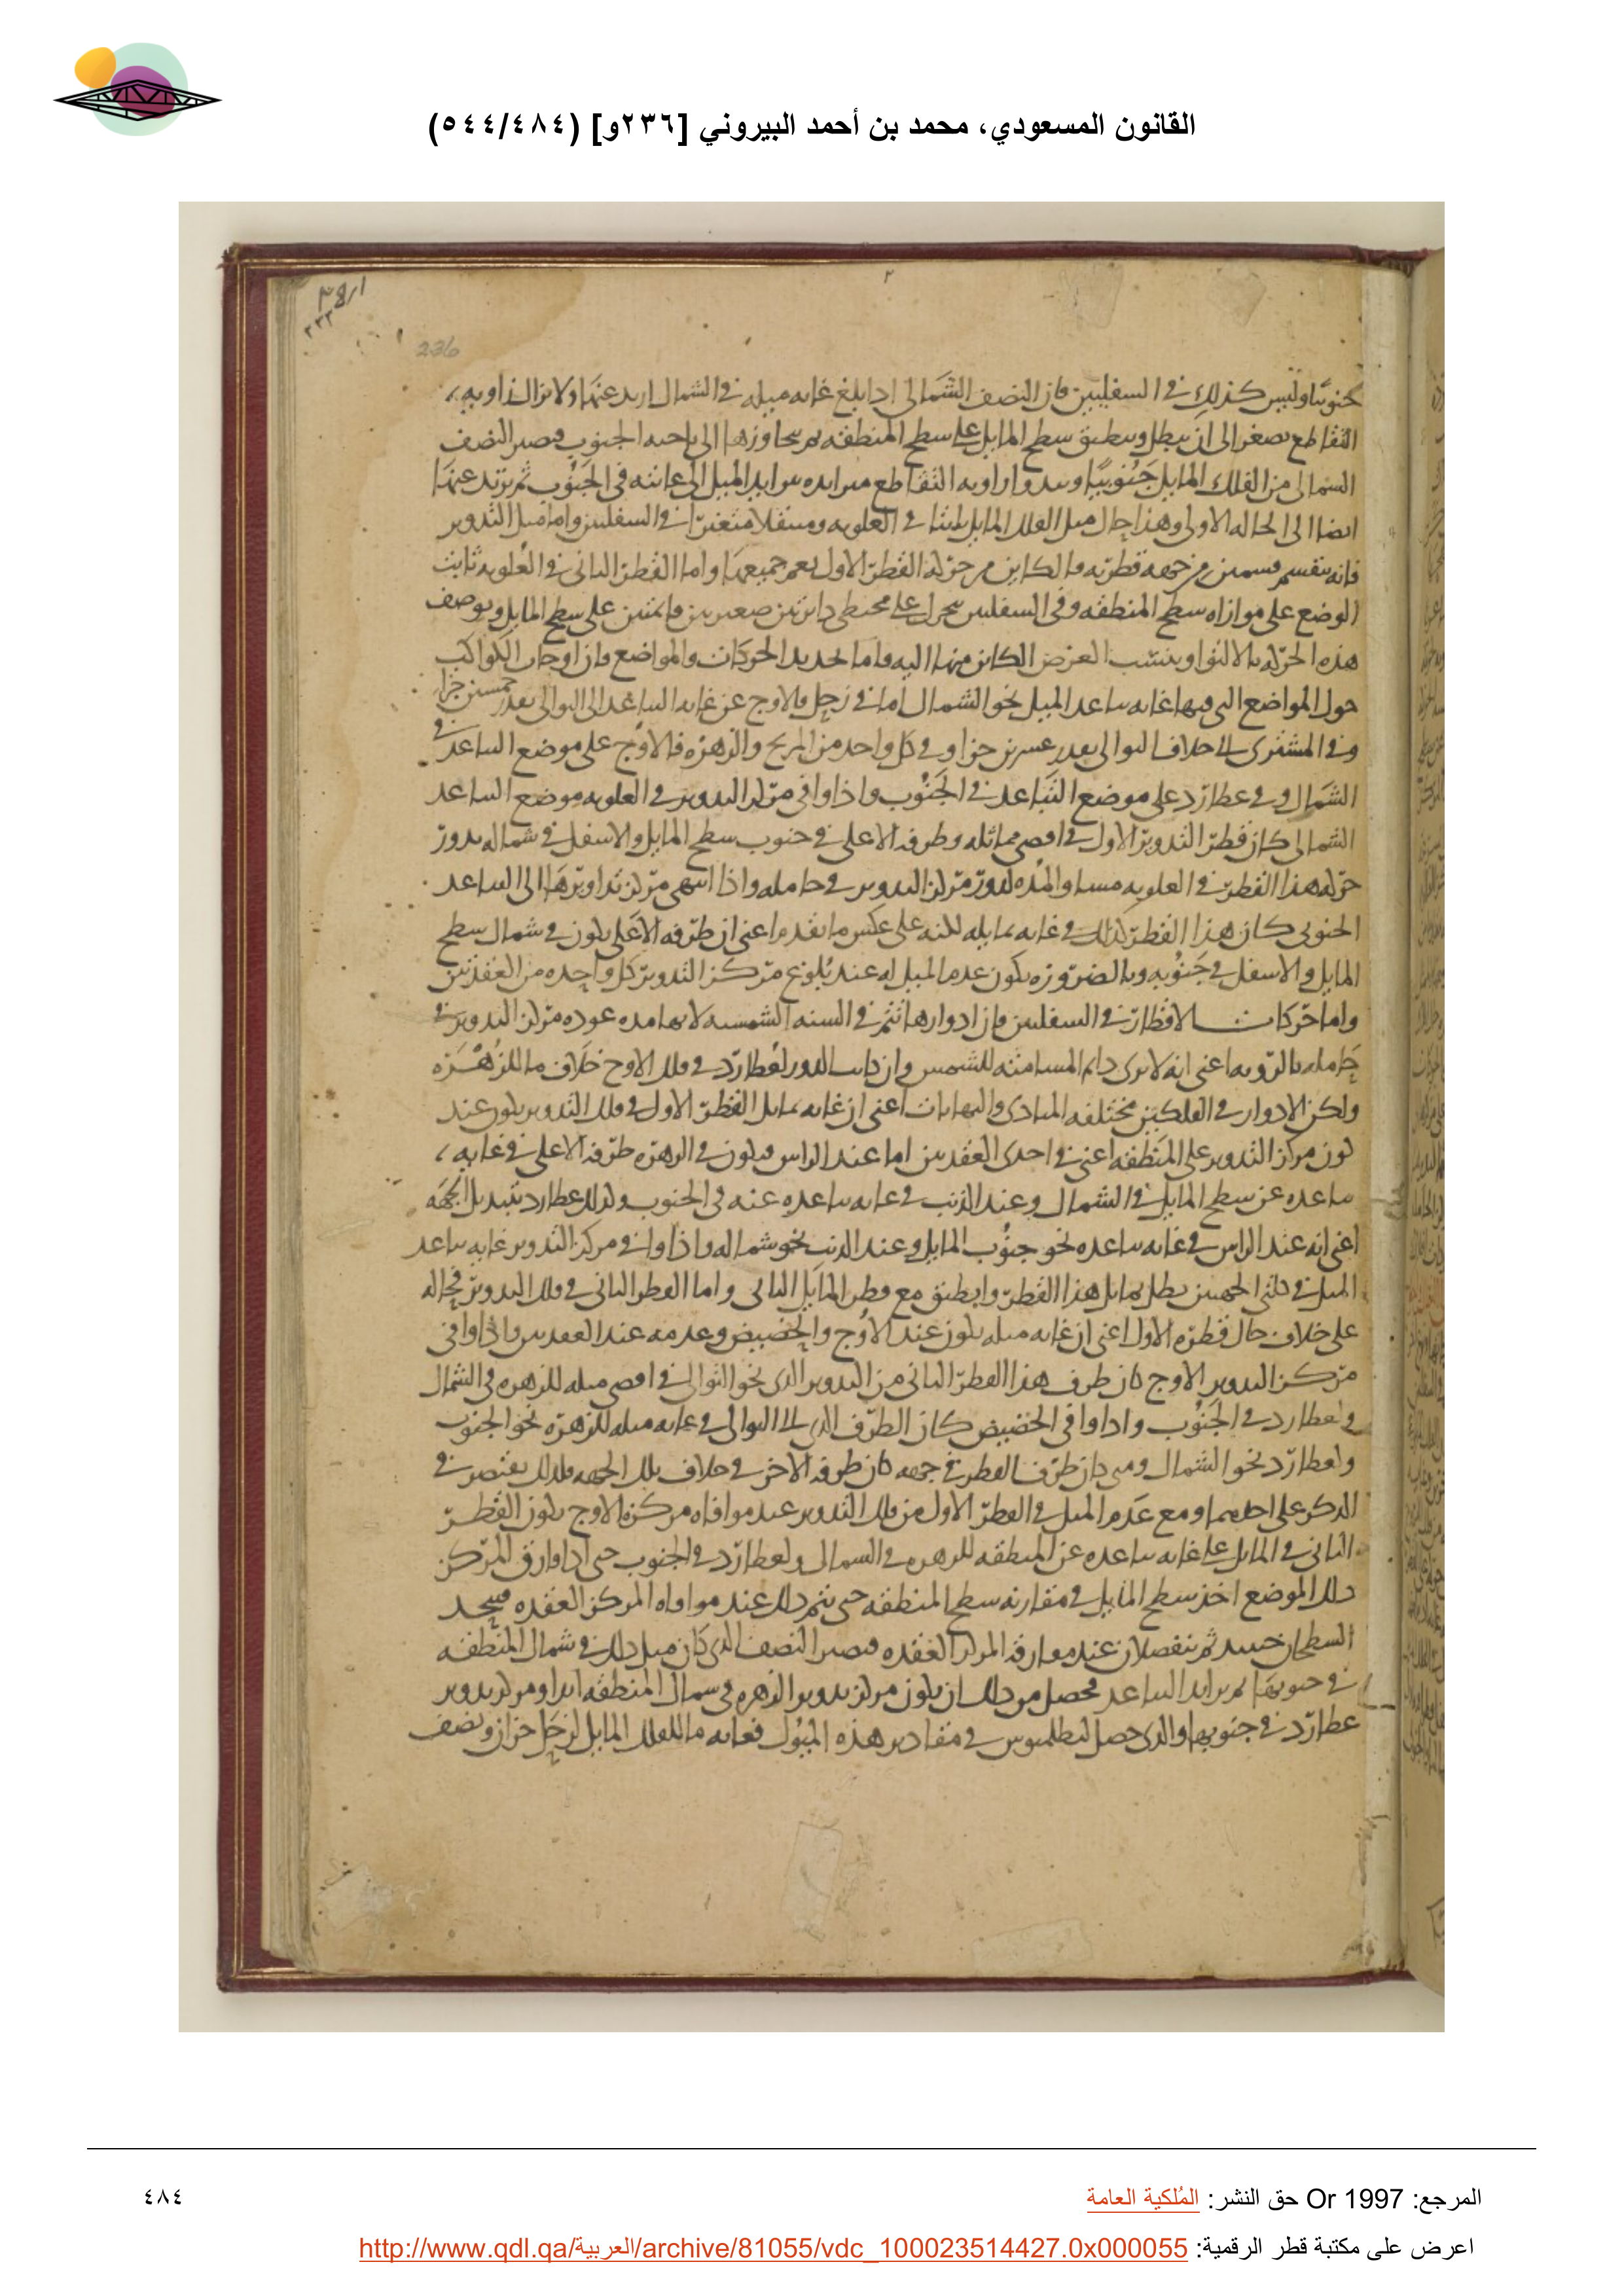 القانون المسعودي، محمد بن أحمد البيروني [٢٣٦و] (٥٤٤/٤٨٤)
236
جنوبيا وليس كذلك في السفليين فان النصف الشمالى اذا بلغ غاية ميله في الشمال ارتد عنها ولا تزال زاوية
التقاطع تصغر الى ان تبطل وينطبق سطح المايل على سطح المنطقة ثم يتجاوزها الى ناحية الجنوب فيصير النصف
الشمالى من الفلك المايل جنوبيا وتبدوا زاوية التقاطع متزايدة بتزايد الميل الى غايته في الجنوب ثم يرتد عنها
ايضا الى الحالة الاولى وهذا حال ميل الفلك المايل ثابتا في العلوية ومتنقلا متغيرا في السفليين واما ميل التدوير
فانه ينقسم قسمين من جهة قطريه فالكاين من حركة القطر الاول يعم جميعها واما القطر الثانى في العلوية ثابت
الوضع على موازاة سطح المنطقة وفي السفليين يتحرك على محيطى دايرتين صغيرتين قايمتين على سطح المايل ويوصف
هذه الحركة بالالتواء وينسب العرض الكاين منها اليه واما تحديد الحركات والمواضع فان اوجات الكواكب
حول المواضع التى فيها غاية تباعد الميل نحو الشمال اما في زحل فالاوج عن غاية التباعد الى التوالى بعد خمسين جزءا
وفي المشترى الى خلاف التوالى بعد عشرين جزءا وفي كل واحد من المريخ والزهرة فالاوج على موضع التباعد في
الشمال وفي عطارد على موضع التباعد في الجنوب واذا وافى مركز التدوير في العلوية موضع التباعد
الشمالى كان قطر التدوير الاول في اقصى مماثلة وطرفه الاعلى في جنوب سطح المايل والاسفل في شماله بدور
حركة هذا القطر في العلوية مساو المدة لدور مركز التدوير في حامله واذا انتهى مركز تداويرها الى التباعد
الجنوبى كان هذا القطر كذلك في غاية تمايله لكنه على عكس ما تقدم اعنى ان طرفه الاعلى يكون في شمال سطح
المايل والاسفل في جنوبه وبالضرورة يكون عدم الميل له عند بلوغ مركز التدوير كل واحدة من العقدتين
واما حركات الاقطار في السفليين فان ادوارها تتم في السنة الشمسية لانها مدة عودة مركز التدوير في
حامله بالرؤية اعنى انه لا يرى دايم المسامتة للشمس وان كانت الدور لعطارد في فلك الاوج خلاف ما للزهرة
ولكن الادوار في الفلكين مختلفة المبادى والنهايات اعنى ان غاية تمايل القطر الاول في فلك التدوير يكون عند
كون مركز التدوير على المنطقة اعنى في احدى العقدتين اما عند الراس فيكون في الزهرة طرفه الاعلى في غاية
تباعده عن سطح المايل في الشمال وعند الذنب في غاية تباعده عنه في الجنوب وكذلك عطارد بتبديل الجهة
اعنى انه عند الراس في غاية تباعده نحو جنوب المايل وعند الذنب نحو شماله واذا وافى مركز التدوير غاية تباعد
الميل في كلتى الجهتين بطل تمايل هذا القطر وانطبق مع قطر المايل الثانى واما القطر الثانى في فلك التدوير فحاله
على خلاف حال قطره الاول اعنى ان غاية ميله يكون عند الاوج والحضيض وعدمه عند العقدتين واذا وافى
مركز التدوير الاوج كان طرف هذا القطر الثانى من التدوير الذى نحو التوالى في اقصى ميله للزهرة في الشمال
ولعطارد في الجنوب واذا وافى الحضيض كان الطرف الذى الى التوالى في غاية ميله للزهرة نحو الجنوب
ولعطارد نحو الشمال ومتى كان طرف القطر في جهة كان طرفه الاخر في خلاف تلك الجهة فلذلك يقتصر في
الذكر على احدهما ومع عدم الميل في القطر الاول من فلك التدوير عند موافاة مركزه الاوج يكون القطر
الثانى في المايل على غاية تباعده عن المنطقة للزهرة في الشمال ولعطارد في الجنوب حتى اذا فارق المركز
ذلك الموضع اخذ سطح المايل في مقاربة سطح المنطقة حتى يتم ذلك عند موافاة المركز العقدة فيتحد
السطحان حينئذ ثم ينفصلان عند مفارقة المركز العقدة فيصير النصف الذى كان قبل ذلك في شمال المنطقة
في جنوبها ثم يتزايد التباعد فحصل من ذلك ان يكون مركز تدوير الزهرة في شمال المنطقة ابدا ومركز تدوير
عطارد في جنوبها والذى حصل لبطلميوس في مقادير هذه الميول فغاية ما للفلك المايل لزحل جزءان ونصف
المرجع: Or 1997 حق النشر: المُلكية العامة
٤٨٤
اعرض على مكتبة قطر الرقمية: http://www.qdl.qa/العربية/archive/81055/vdc_100023514427.0x000055